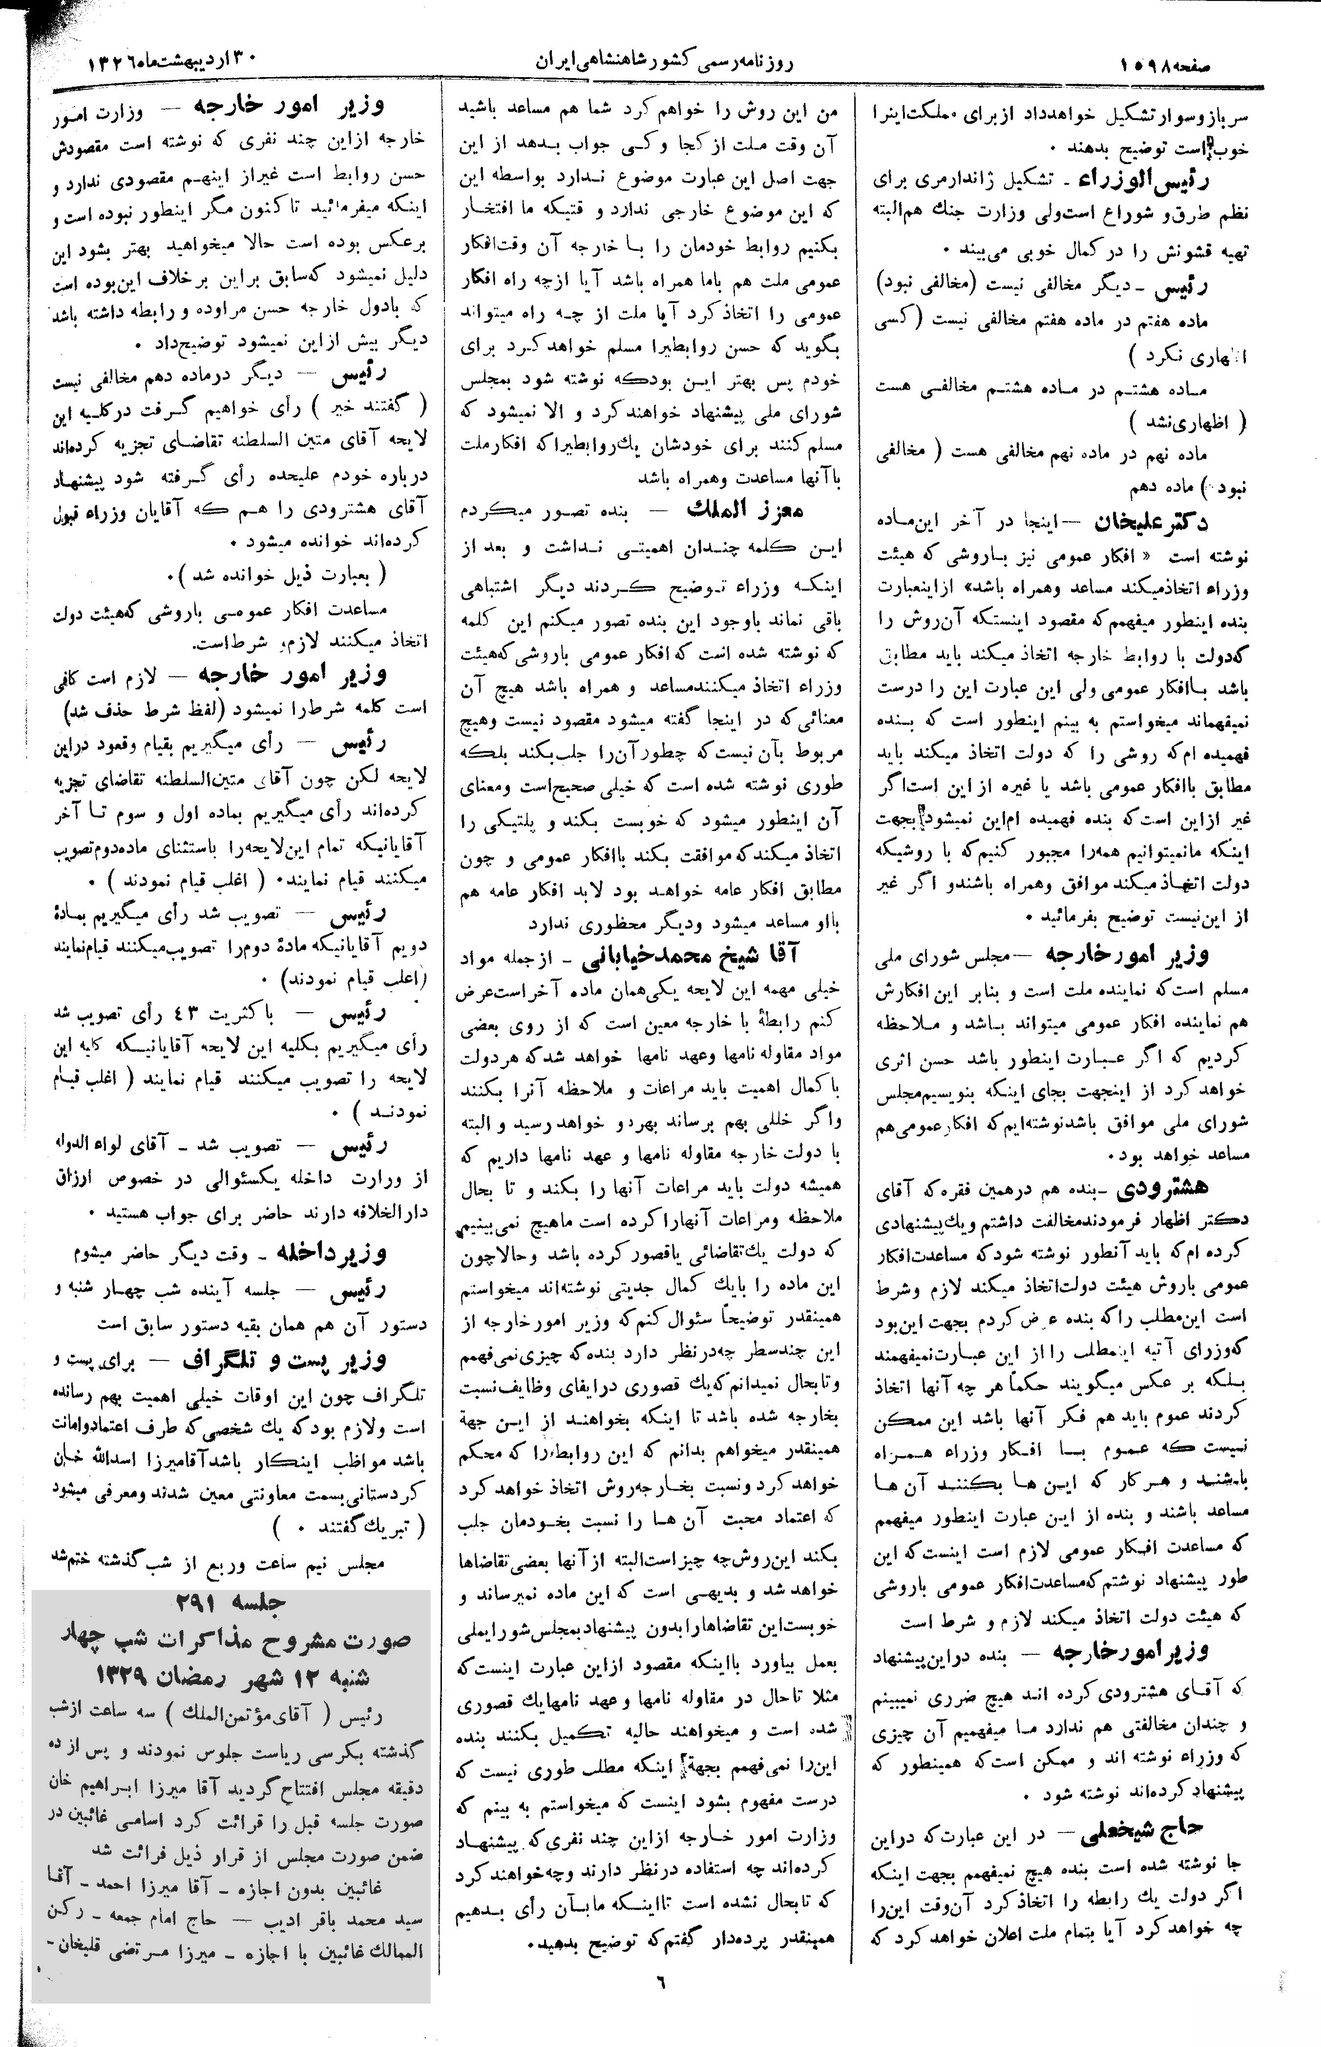 صفحه ۱۵۹۸
روزنامه رسمی کشور شاهنشاهی ایران
۳۰ اردیبهشت ماه ۱۳۲۶
سرباز و سوار تشکیل خواهد داد از برای مملکت اینرا
خوب است توضیح بدهند ۰
رئیس الوزراء ـ تشکیل ژاندارمری برای
نظم طرق و شوراع است ولی وزارت جنك هم البته
تهیه قشونش را در کمال خوبی می‌بیند ۰
رئیس ـ دیگر مخالفی نیست (مخالفی نبود)
ماده هفتم در ماده هفتم مخالفی نیست ( کسی
اظهاری نکرد )
ماده هشتم در ماده هشتم مخالفی هست
( اظهاری نشد )
ماده نهم در ماده نهم مخالفی هست ( مخالفی
نبود ) ماده دهم
دکتر علیخان — اینجا در آخر این ماده
نوشته است « افکار عمومی نیز با روشی که هیئت
وزراء اتخاذ میکند مساعد وهمراه باشد» از اینعبارت
بنده اینطور میفهمم که مقصود اینستکه آن روش را
که دولت با روابط خارجه اتخاذ میکند باید مطابق
باشد با افکار عمومی ولی این عبارت این را درست
نمیفهماند میخواستم به بینم اینطور است که بنده
فهمیده ام که روشی را که دولت اتخاذ میکند باید
مطابق با افکار عمومی باشد یا غیره از این است اگر
غیر از این است که بنده فهمیده ام این نمیشود بجهت
اینکه ما نمیتوانیم همه را مجبور کنیم که با روشیکه
دولت اتخاذ میکند موافق وهمراه باشند و اگر غیر
از این نیست توضیح بفرمائید ۰
وزیر امور خارجه — مجلس شورای ملی
مسلم است که نماینده ملت است و بنابر این افکارش
هم نماینده افکار عمومی میتواند باشد و ملاحظه
کردیم که اگر عبارت اینطور باشد حسن اثری
خواهد کرد از اینجهت بجای اینکه بنویسیم مجلس
شورای ملی موافق باشد نوشته‌ایم که افکار عمومی هم
مساعد خواهد بود۰
هشترودی ـ بنده هم در همین فقره که آقای
دکتر اظهار فرمودند مخالفت داشتم و یك پیشنهادی
کرده ام که باید آنطور نوشته شود که مساعدت افکار
عمومی با روش هیئت دولت اتخاذ میکند لازم وشرط
است این مطلب را که بنده عرض کردم بجهت این بود
که وزرای آتیه اینمطلب را از این عبارت نمیفهمند
بلکه بر عکس میگویند حکماً هر چه آنها اتخاذ
کردند عموم باید هم فکر آنها باشد این ممکن
نیست که عموم با افکار وزراء همراه
باشند و هر کار که این ها بکنند آن ها
مساعد باشند و بنده از این عبارت اینطور میفهمم
که مساعدت افکار عمومی لازم است اینست که این
طور پیشنهاد نوشتم که مساعدت افکار عمومی با روشی
که هیئت دولت اتخاذ میکند لازم و شرط است
وزیر امور خارجه — بنده در این پیشنهاد
که آقای هشترودی کرده اند هیچ ضرری نمیبینم
و چندان مخالفتی هم ندارد ما میفهمیم آن چیزی
که وزراء نوشته اند و ممکن است که همینطور که
پیشنهاد کرده‌اند نوشته شود ۰
حاج شیخعلی — در این عبارت که در این
جا نوشته شده است بنده هیچ نمیفهمم بجهت اینکه
اگر دولت یك رابطه را اتخاذ کرد آن وقت این را
چه خواهد کرد آیا بتمام ملت اعلان خواهد کرد که
من این روش را خواهم کرد شما هم مساعد باشید
آن وقت ملت از کجا و کی جواب بدهد از این
جهت اصل این عبارت موضوع ندارد بواسطه این
که این موضوع خارجی ندارد و قتیکه ما افتخار
بکنیم روابط خودمان را با خارجه آن وقت افکار
عمومی ملت هم باما همراه باشد آیا از چه راه افکار
عمومی را اتخاذ کرد آیا ملت از چه راه میتواند
بگوید که حسن روابطیرا مسلم خواهد کرد برای
خودم پس بهتر این بود که نوشته شود بمجلس
شورای ملی پیشنهاد خواهند کرد و الا نمیشود که
مسلم کنند برای خودشان یك روابطیرا که افکار ملت
با آنها مساعدت وهمراه باشد
معزز الملك — بنده تصور میکردم
این کلمه چندان اهمیتی نداشت و بعد از
اینکه وزراء توضیح کردند دیگر اشتباهی
باقی نماند با وجود این بنده تصور میکنم این کلمه
که نوشته شده است که افکار عمومی با روشی که هیئت
وزراء اتخاذ میکنند مساعد و همراه باشد هیچ آن
معنائی که در اینجا گفته میشود مقصود نیست وهیچ
مربوط بآن نیست که چطور آن را جلب بکند بلکه
طوری نوشته شده است که خیلی صحیح است ومعنای
آن اینطور میشود که خوبست بکند و پلتیکی را
اتخاذ میکند که موافقت بکند با افکار عمومی و چون
مطابق افکار عامه خواهد بود لابد افکار عامه هم
با او مساعد میشود و دیگر محظوری ندارد
آقا شیخ محمد خیابانی ـ از جمله مواد
خیلی مهمه این لایحه یکی همان ماده آخر است عرض
کنم رابطهٔ با خارجه معین است که از روی بعضی
مواد مقاوله نامها وعهد نامها خواهد شد که هر دولت
با کمال اهمیت باید مراعات و ملاحظه آنرا بکنند
واگر خللی بهم برساند بهر دو خواهد رسید و البته
با دولت خارجه مقاوله نامها و عهد نامها داریم که
همیشه دولت باید مراعات آنها را بکند و تا بحال
ملاحظه ومراعات آنها را کرده است ما هیچ نمی‌بینیم
که دولت یك تقاضائی یا قصور کرده باشد و حالا چون
این ماده را با یك کمال جدیتی نوشته‌اند میخواستم
همینقدر توضیحاً سئوال کنم که وزیر امور خارجه از
این چند سطر چه در نظر دارد بنده که چیزی نمی فهمم
و تا بحال نمیدانم که یك قصوری در ایفای وظایف نسبت
بخارجه شده باشد تا اینکه بخواهند از این جهة
همینقدر میخواهم بدانم که این روابط را که محکم
خواهد کرد و نسبت بخارجه روش اتخاذ خواهد کرد
که اعتماد محبت آن ها را نسبت بخودمان جلب
بکند این روش چه چیز است البته از آنها بعضی تقاضاها
خواهد شد و بدیهی است که این ماده نمیرساند و
خوبست این تقاضاها را بدون پیشنهاد بمجلس شورایملی
بعمل بیاورد با اینکه مقصود از این عبارت اینست که
مثلا تا حال در مقاوله نامها و عهد نامها یك قصوری
شده است و میخواهند حالیه تکمیل بکنند بنده
این را نمی فهمم بجهة اینکه مطلب طوری نیست که
درست مفهوم بشود اینست که میخواستم به بینم که
وزارت امور خارجه از این چند نفری که پیشنهاد
کرده‌اند چه استفاده در نظر دارند و چه خواهند کرد
که تا بحال نشده است تا اینکه ما بآن رأی بدهیم
همینقدر پرده‌دار گفتم که توضیح بدهید۰
وزیر امور خارجه — وزارت امور
خارجه از این چند نفری که نوشته است مقصودش
حسن روابط است غیر از اینهم مقصودی ندارد و
اینکه میفرمائید تا کنون مگر اینطور نبوده است و
بر عکس بوده است حالا میخواهید بهتر بشود این
دلیل نمیشود که سابق بر این بر خلاف این بوده است
که با دول خارجه حسن مراوده و رابطه داشته باشد
دیگر بیش از این نمیشود توضیح داد ۰
رئیس — دیگر در ماده دهم مخالفی نیست
( گفتند خیر ) رأی خواهیم گرفت در کلیه این
لایحه آقای متین السلطنه تقاضای تجزیه کرده‌اند
درباره خودم علیحده رأی گرفته شود پیشنهاد
آقای هشترودی را هم که آقایان وزراء قبول
کرده‌اند خوانده میشود ۰
( بعبارت ذیل خوانده شد )۰
مساعدت افکار عمومی با روشی که هیئت دولت
اتخاذ میکنند لازم و شرط است.
وزیر امور خارجه — لازم است کافی
است کلمه شرط را نمیشود (لفظ شرط حذف شد)
رئیس — رأی میگیریم بقیام وقعود در این
لایحه لکن چون آقای متین السلطنه تقاضای تجزیه
کرده‌اند رأی میگیریم بماده اول و سوم تا آخر
آقایانیکه تمام این لایحه را باستثنای ماده دوم تصویب
میکنند قیام نمایند۰ ( اغلب قیام نمودند ) ۰
رئیس — تصویب شد رأی میگیریم بمادهٔ
دویم آقایانیکه مادهٔ دوم را تصویب میکنند قیام نمایند
(اغلب قیام نمودند) ۰
رئیس — با کثریت ۴۳ رأی تصویب شد
رأی میگیریم بکلیه این لایحه آقایانیکه کلیه این
لایحه را تصویب میکنند قیام نمایند ( اغلب قیام
نمودند ) ۰
رئیس — تصویب شد ـ آقای لواء الدوله
از وزارت داخله یکسئوالی در خصوص ارزاق
دارالخلافه دارند حاضر برای جواب هستید ۰
وزیر داخله ـ وقت دیگر حاضر میشوم
رئیس — جلسه آینده شب چهار شنبه و
دستور آن هم همان بقیه دستور سابق است
وزیر پست و تلگراف — برای پست و
تلگراف چون این اوقات خیلی اهمیت بهم رسانده
است ولازم بود که یك شخصی که طرف اعتماد و امانت
باشد مواظب اینکار باشد آقا میرزا اسدالله خان
کردستانی بسمت معاونتی معین شدند ومعرفی میشود
( تبریك گفتند ۰ )
مجلس نیم ساعت و ربع از شب گذشته ختم شد
جلسه ۲۹۱
صورت مشروح مذاکرات شب چهار
شنبه ۱۲ شهر رمضان ۱۳۲۹
رئیس ( آقای مؤتمن الملك ) سه ساعت از شب
گذشته بکرسی ریاست جلوس نمودند و پس از ده
دقیقه مجلس افتتاح گردید آقا میرزا ابراهیم خان
صورت جلسه قبل را قرائت کرد اسامی غائبین در
ضمن صورت مجلس از قرار ذیل قرائت شد
غائبین بدون اجازه ـ آقا میرزا احمد ـ آقا
سید محمد باقر ادیب — حاج امام جمعه ـ رکن
الممالك غائبین با اجازه ـ میرزا مرتضی قلیخان-
۶